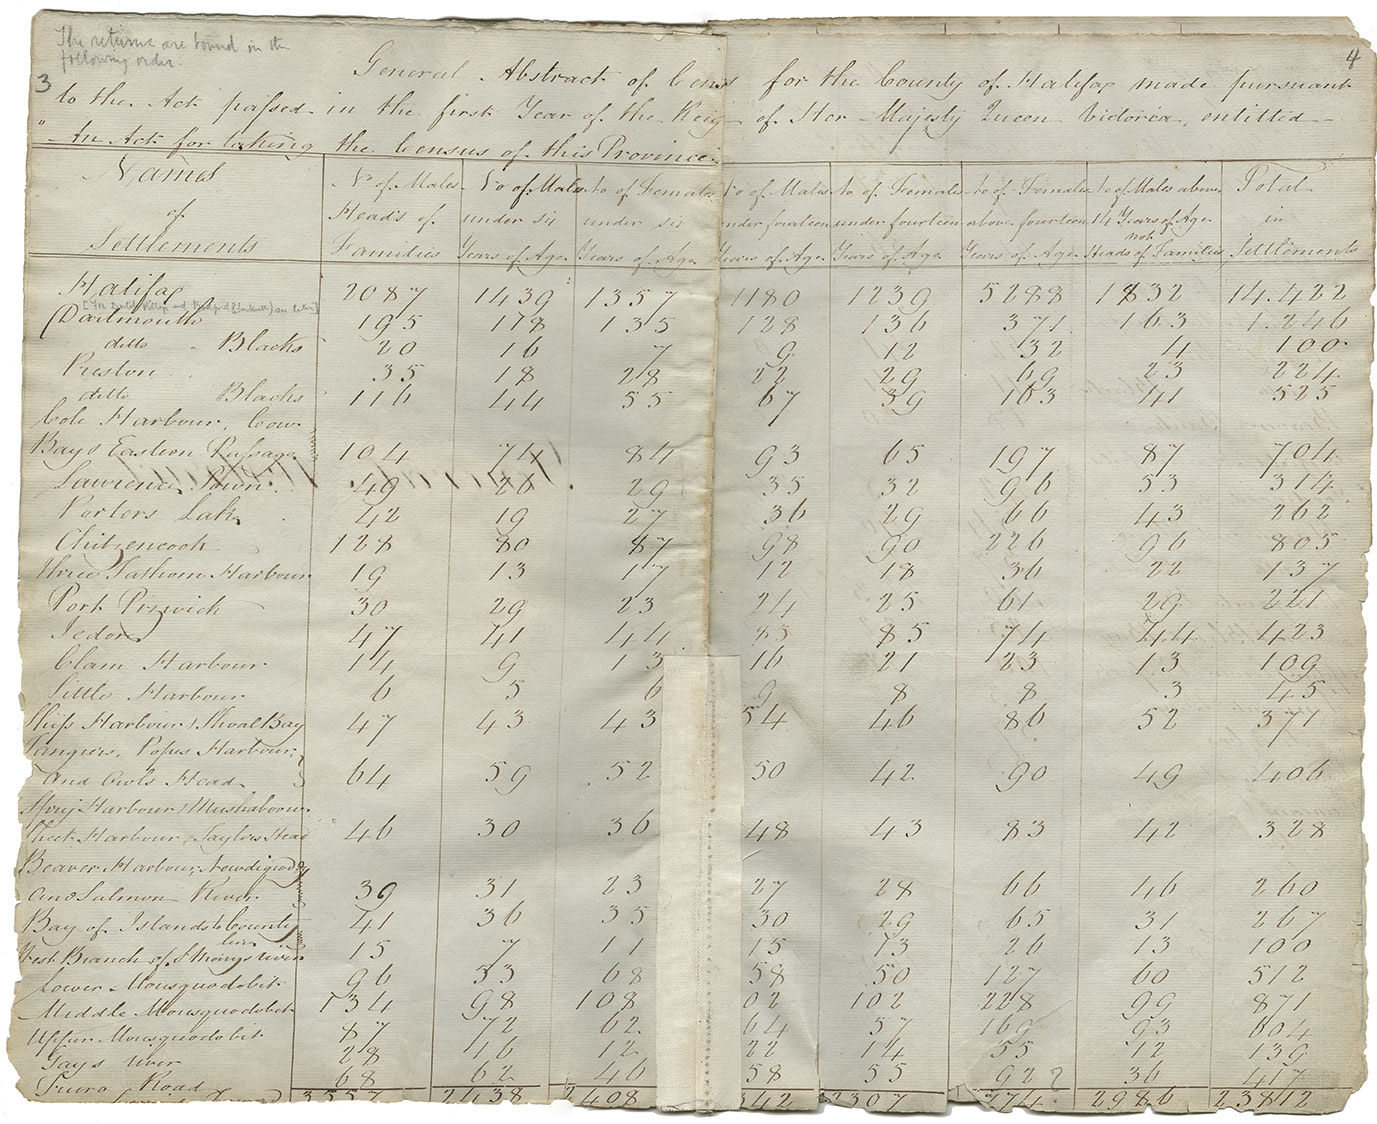 The returns are bound in the
following order.
3
4
General Abstract of Cens for the County of Halifax made pursuant
to the Act passed in the first Year of the Reig of Her Majesty Queen Victoria, entitled
"An Act for taking the Census of this Province
Names of Settlements | No of Males Heads of Families | No of Males under six Years of Age | No of Females under six Years of Age | No of Males under fourteen Years of Age | No of Females under fourteen Years of Age | No of Females above fourteen Years of Age | No of Males above 14 Years of Age not Heads of Families | Total in Settlements
Halifax 2087 1439 1357 1180 239 5288 1832 14.422
Dartmouth 195 178 135 128 136 371 163 1.246
ditto " Blacks 20 16 7 9 12 32 4 100
Preston 35 18 28 22 29 69 23 224
ditto Blacks 116 44 55 67 39 163 41 525
Cole Harbour, Cow
Bay & Eastern Passage 104 74 84 93 65 197 87 704
Lawrence Town 49 20 29 35 32 96 53 314
Porters Lake 42 19 27 36 29 66 43 262
Chitzencook 128 80 87 98 90 226 96 805
three Fathom Harbour 19 13 17 12 18 36 22 137
Port Pizwich 30 29 23 24 25 61 29 221
Jedore 47 41 44 85 85 74 44 423
Clam Harbour 14 9 13 16 21 23 13 109
Little Harbour 6 5 6 9 8 8 3 45
Ship Harbour & Shoal Bay 47 43 43 54 46 86 52 371
Tangier, Popes Harbour,
and Owls Head 64 59 52 50 42 90 49 406
Spry Harbour & Mushaboon
Sheet Harbour, Taylors Head 46 30 36 48 43 83 42 328
Beaver Harbour, Newdiquoddy
and Salmon River 39 31 23 27 28 66 46 260
Bay of Islands to County line 41 36 35 30 29 65 31 267
West Branch of St Marys river 15 7 11 15 13 26 13 100
Lower Mousquodobit 96 53 68 58 50 127 60 512
Middle Mousquodobit 134 98 108 02 102 228 99 871
Upper Mousquodobit 87 72 62 64 57 169 93 604
Gays river 28 16 12 22 14 55 12 139
Truro Road 68 62 46 58 55 92? 36 417
3557 2438 2408 342 2307 774 2986 23812